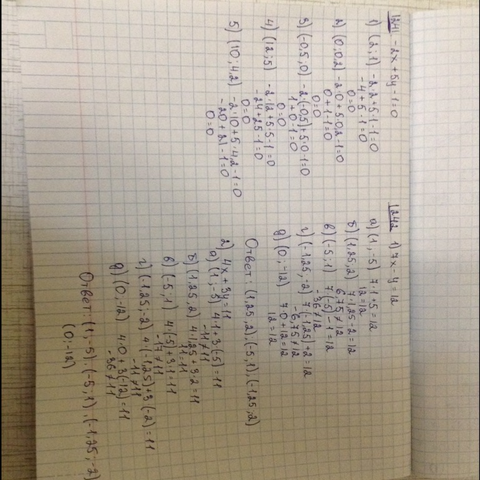 1241 -2x+5y-1=0
1) (2;1) -2·2+5·1-1=0
-4+5-1=0
0=0
2) (0;0,2) -2·0+5·0,2-1=0
0+1-1=0
0=0
3) (-0,5;0) -2·(-0,5)+5·0-1=0
1+0-1=0
0=0
4) (12;5) -2·12+5·5-1=0
-24+25-1=0
0=0
5) (10;4,2) -2·10+5·4,2-1=0
-20+21-1=0
0=0
1242 1) 7x-y=12
а) (1;-5) 7·1+5=12
12=12
б) (1,25;2) 7·1,25-2=12
6,75≠12
в) (-5;1) 7·(-5)-1=12
-36≠12
г) (-1,25;-2) 7(-1,25)+2=12
-6,75≠12
д) (0;-12) 7·0+12=12
12=12
Ответ: (1,25;2).(-5;1).(-1,25;-2)
2) 4x+3y=11
а) (1;-5) 4·1+3·(-5)=11
-11≠11
б) (1,25;2) 4·1,25+3·2=11
11=11
в) (-5;1) 4·(-5)+3·1=11
-17≠11
г) (-1,25;-2) 4·(-1,25)+3·(-2)=11
-11≠11
д) (0;-12) 4·0+3·(-12)=11
-36≠11
Ответ: (1;-5).(-5;1).(-1,25;-2)
(0;-12)